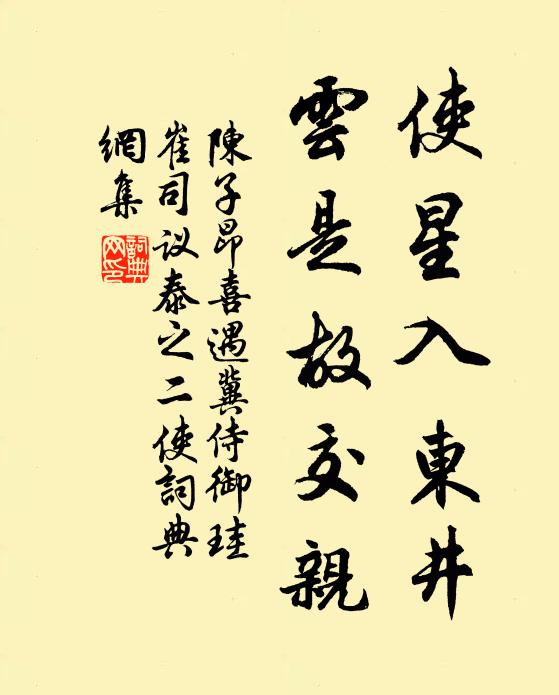 使星入東井
雲是故交親
陳子昂喜遇冀侍御珪
崔司议泰之二使詞典
網集
詞典網印